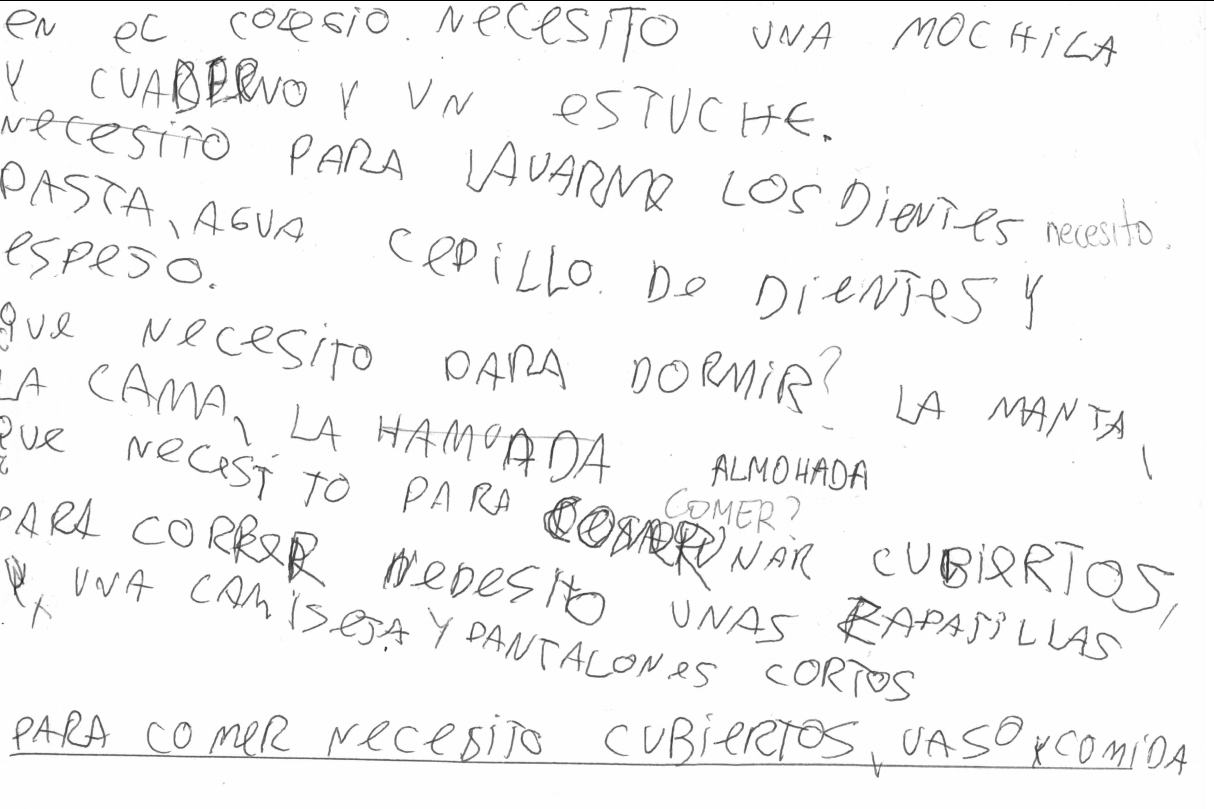 EN EL COLEGIO. NECESITO UNA MOCHILA
Y CUADERNO Y UN ESTUCHE.
NECESITO PARA LAVARME LOS DIENTES necesito.
PASTA, AGUA CEPILLO. DE DIENTES Y
ESPEJO.
QUE NECESITO PARA DORMIR? LA MANTA,
LA CAMA, LA HAMOADA ALMOHADA
¿QUE NECESITO PARA COMER?
CUBIERTOS,
PARA CORRER NEDESITO UNAS ZAPATILLAS
Y, UNA CAMISETA Y PANTALONES CORTOS
PARA COMER NECESITO CUBIERTOS, VASO Y COMIDA